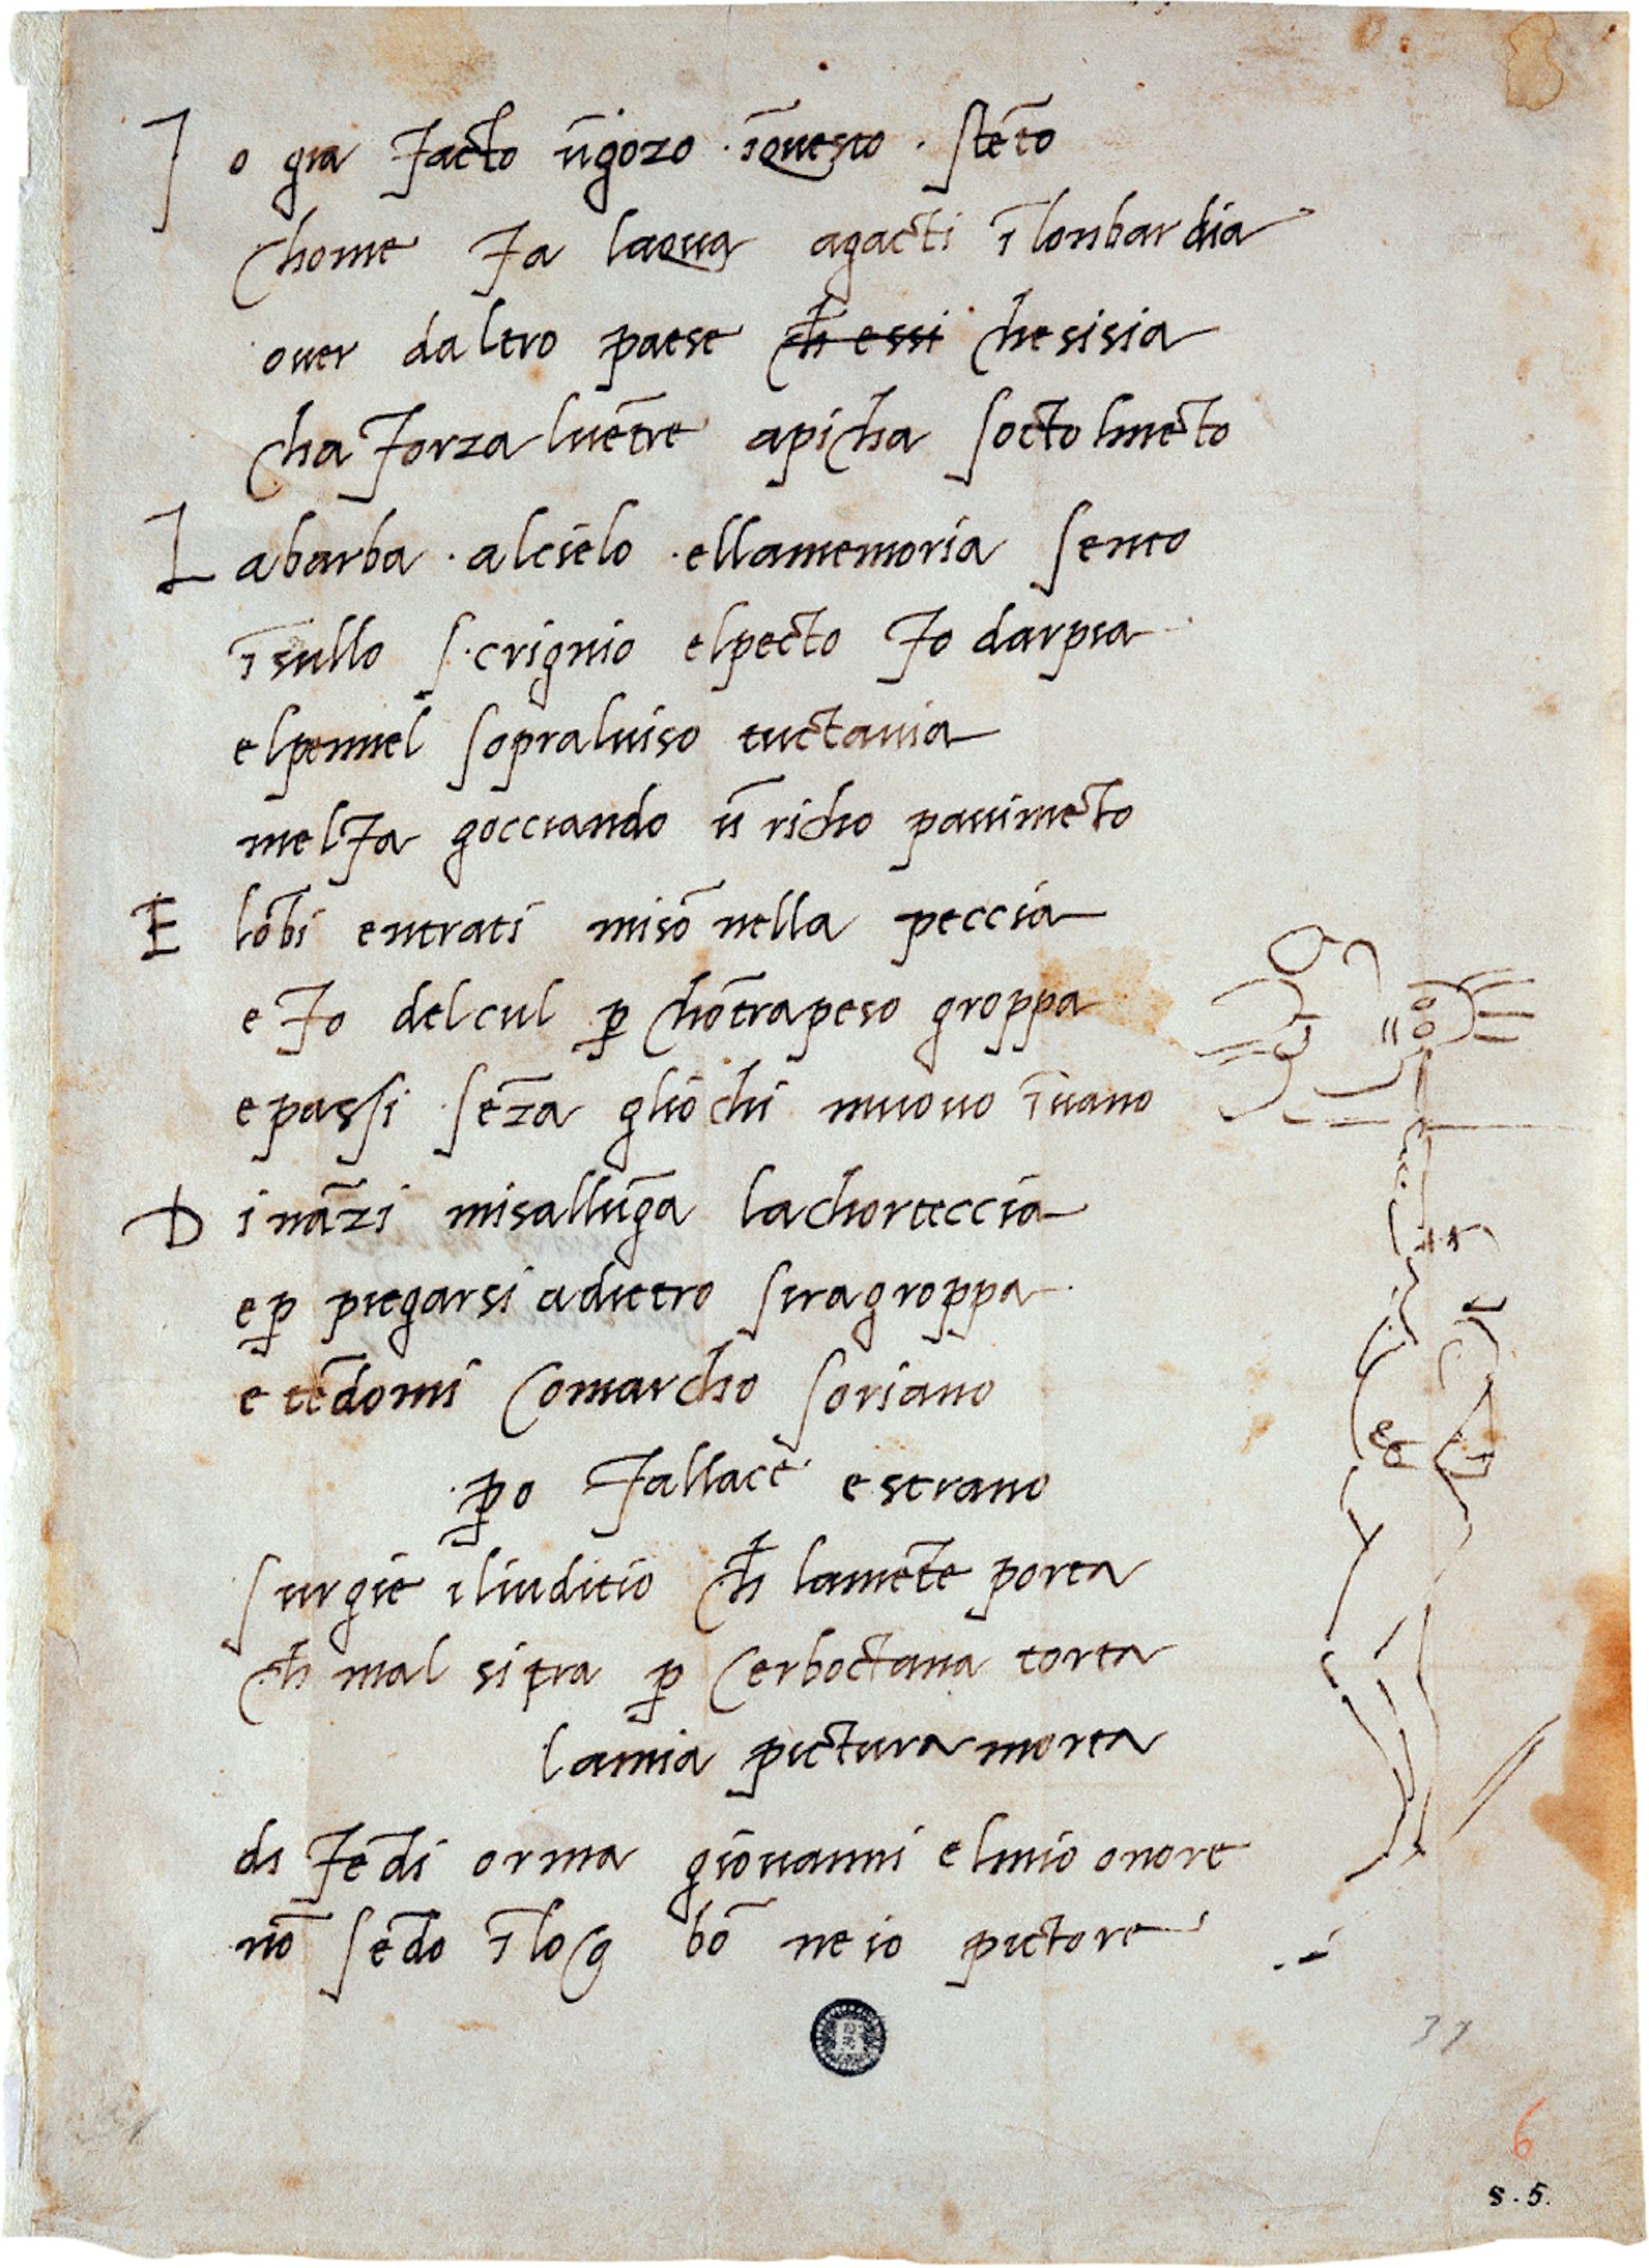 I o gia facto ūgozo · īquesto · stēto
chome fa laqua agacti ī lonbardia
over daltro paese ch̄ essi chesisia
cha forza lvētre apicha socto lmēto
L abarba · alcielo · ellamemoria sento
īsullo scrignio elpecto fo darpia
elpennel sopraluiso tuctauia
melfa gocciando ū richo pauimēto
E lōbi entrati miso nella peccia
e fo delcul p̱ chōtrapeso groppa
epassi sēza gliochi muouo īuano
D ināzi misallūga lachorteccia
ep̱ piegarsi adietro siragroppa
e tēdomi comarcho soriano
p̱o fallace estrano
surgie iliuditio ch̄ lamēte porta
ch̄ mal si tra p̱ cerboctana torta
lamia pictura morta
di fēdi orma giouanni elmio onore
nō sēdo ī loco bō ne io pictore
37
6
s . 5.